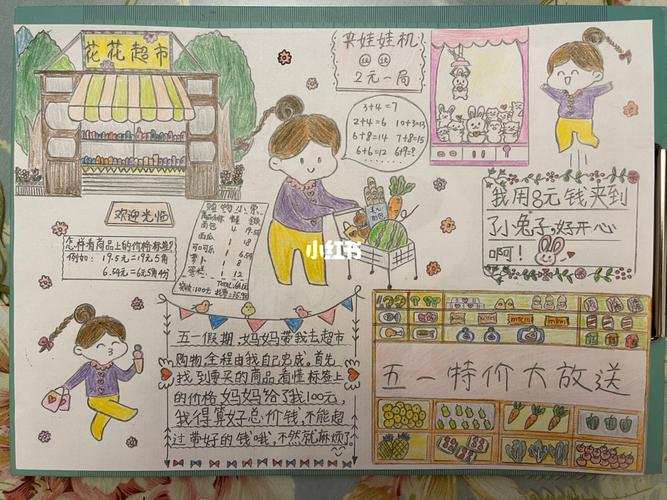 花花超市
欢迎光临
怎样看商品上的价格标签?
例如: 19.5元=19元5角
购物小票
面包
南瓜
可可乐
萝卜
蛋糕
3+4=7
2+4=6 10+3=13
6+8=14 7+8=15
6+6=12
夹娃娃机
2元一局
我用8元钱夹到
了小兔子,好开心
啊!
小红书
五一假期,妈妈带我去超市
购物,全程由我自己完成。首先,
找到要买的商品,看懂标签上
的价格,妈妈给了我100元,
我得算好总价钱,不能超
过带好的钱哦,不然就麻烦了
五一特价大放送